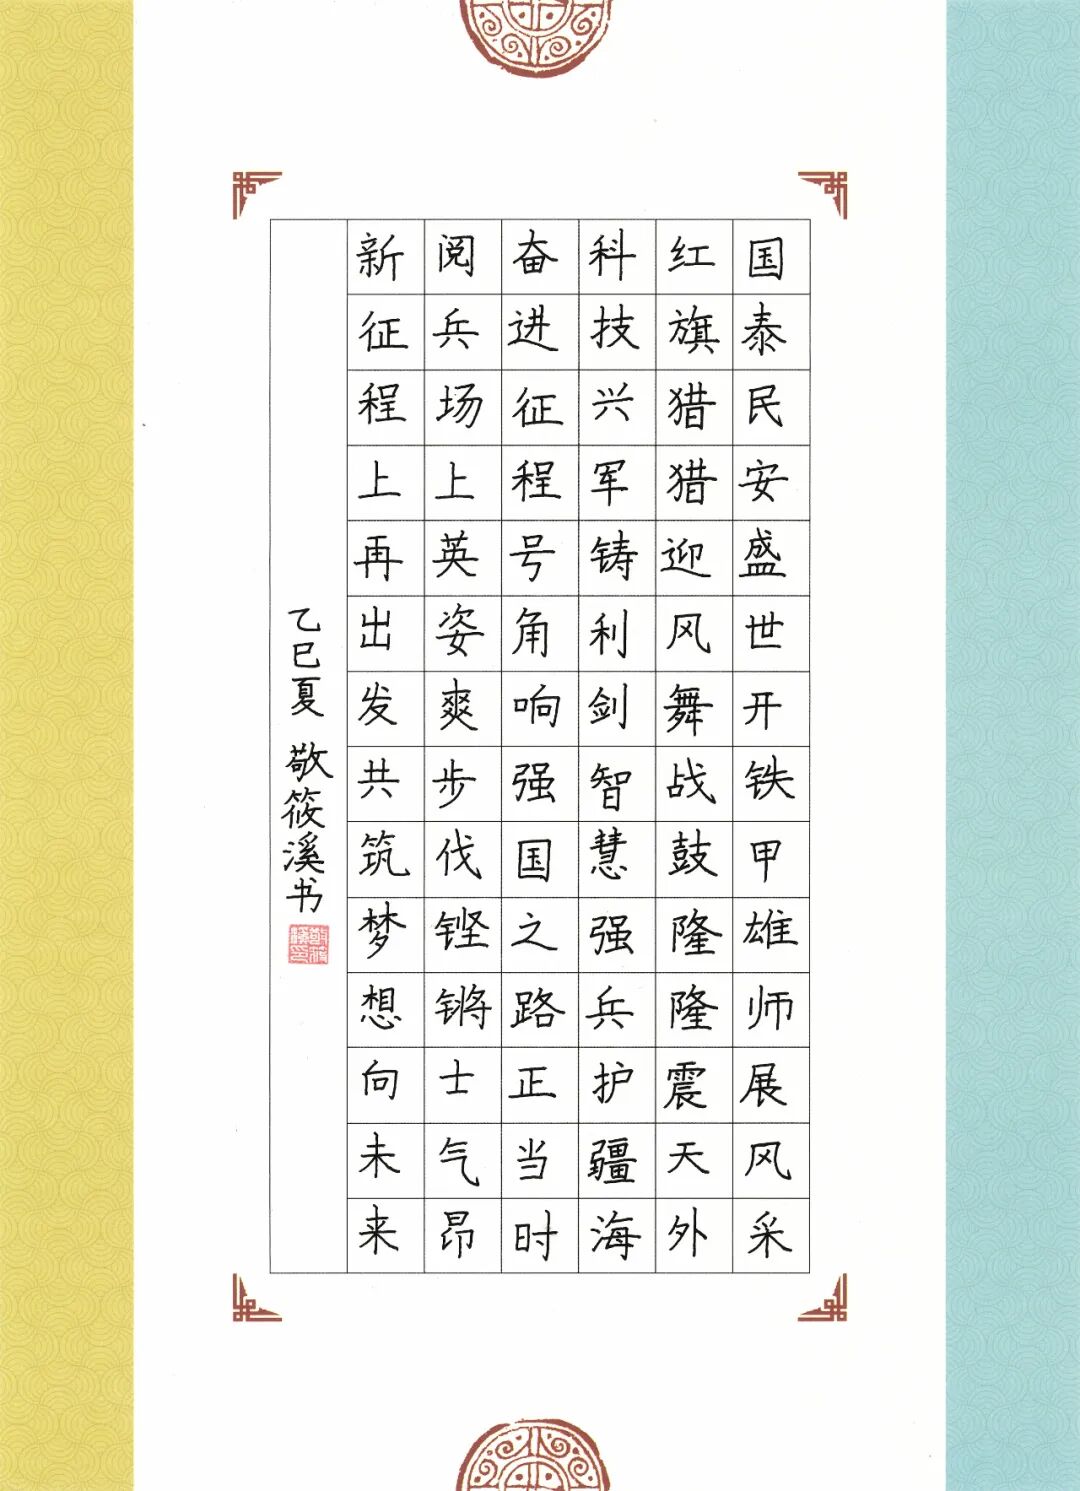 国泰民安盛世开铁甲雄师展风采
红旗猎猎迎风舞战鼓隆隆震天外
科技兴军铸利剑智慧强兵护疆海
奋进征程号角响强国之路正当时
阅兵场上英姿爽步伐铿锵士气昂
新征程上再出发共筑梦想向未来
乙巳夏 敬筱溪书